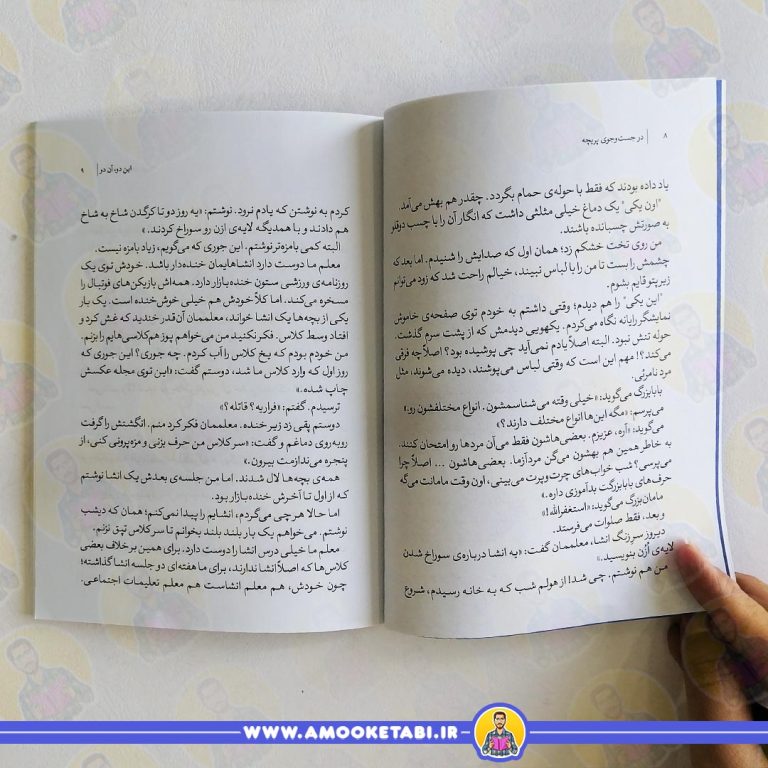 ۸ | در جست‌وجوی پریچه
یاد داده بودند که فقط با حوله‌ی حمام بگردد. چقدر هم بهش می‌آمد.
"اون یکی" یک دماغ خیلی مثلثی داشت که انگار آن را با چسب دوقلو
به صورتش چسبانده باشند.
من روی تخت خشکم زد؛ همان اول که صدایش را شنیدم. اما بعد که
چشمش را بست تا من را با لباس نبیند، خیالم راحت شد که زود می‌توانم
زیر پتو قایم بشوم.
"این یکی" را هم دیدم؛ وقتی داشتم به خودم توی صفحه‌ی خاموش
نمایشگر رایانه نگاه می‌کردم. یکهویی دیدمش که از پشت سرم گذشت.
حوله تنش نبود. البته اصلاً یادم نمی‌آید چی پوشیده بود؟ اصلاً چه فرقی
می‌کند؟! مهم این است که وقتی لباس می‌پوشند، دیده می‌شوند، مثل
مرد نامرئی.
بابابزرگ می‌گوید: «خیلی وقته می‌شناسمشون. انواع مختلفشون رو.»
می‌پرسم: «مگه این‌ها انواع مختلف دارند؟»
می‌گوید: «آره، عزیزم. بعضی‌هاشون فقط می‌آن مردها رو امتحان کنند.
به خاطر همین هم بهشون می‌گن مردآزما. بعضی‌هاشون ... اصلاً چرا
می‌پرسی؟ شب خواب‌های چرت‌وپرت می‌بینی، اون وقت مامانت می‌گه
حرف‌های بابابزرگت بدآموزی داره.»
مامان‌بزرگ می‌گوید: «استغفرالله!»
و بعد، فقط صلوات می‌فرستد.
دیروز سر زنگ انشا، معلممان گفت: «یه انشا درباره‌ی سوراخ شدن
لایه‌ی اُزُن بنویسید.»
من هم نوشتم. چی شد! از هولم شب که به خانه رسیدم، شروع
این دو، آن دو | ۹
کردم به نوشتن که یادم نرود. نوشتم: «یه روز دو تا کرگدن شاخ به شاخ
هم دادند و با همدیگه لایه‌ی ازن رو سوراخ کردند.»
البته کمی بامزه‌تر نوشتم. این جوری که می‌گویم، زیاد بامزه نیست.
معلم ما دوست دارد انشاهایمان خنده‌دار باشد. خودش توی یک
روزنامه‌ی ورزشی ستون خنده‌بازار دارد. همه‌اش بازیکن‌های فوتبال را
مسخره می‌کند. اما کلاً خودش هم خیلی خوش‌خنده است. یک بار
یکی از بچه‌ها یک انشا خواند، معلممان آن‌قدر خندید که غش کرد و
افتاد وسط کلاس. فکر نکنید من می‌خواهم پوز هم‌کلاسی‌هایم را بزنم.
من خودم بودم که یخ کلاس را آب کردم. چه جوری؟ این جوری که
روز اول که وارد کلاس ما شد، دوستم گفت: «این توی مجله عکسش
چاپ شده.»
ترسیدم. گفتم: «فراریه؟ قاتله؟»
دوستم پقی زد زیر خنده. معلممان فکر کرد منم. انگشتش را گرفت
روبه‌روی دماغم و گفت: «سر کلاس من حرف بزنی و مزه‌پرونی کنی، از
پنجره می‌ندازمت بیرون.»
همه‌ی بچه‌ها لال شدند. اما من جلسه‌ی بعدش یک انشا نوشتم
که از اول تا آخرش خنده‌بازار بود.
اما حالا هرچی می‌گردم، انشایم را پیدا نمی‌کنم؛ همان که دیشب
نوشتم. می‌خواهم یک بار بلند بلند بخوانم تا سر کلاس تپق نزنم.
معلم ما خیلی درس انشا را دوست دارد. برای همین برخلاف بعضی
کلاس‌ها که اصلاً انشا ندارند، برای ما هفته‌ای دو جلسه انشا گذاشته؛
چون خودش، هم معلم انشاست هم معلم تعلیمات اجتماعی.
WWW.AMOOKETABI.IR